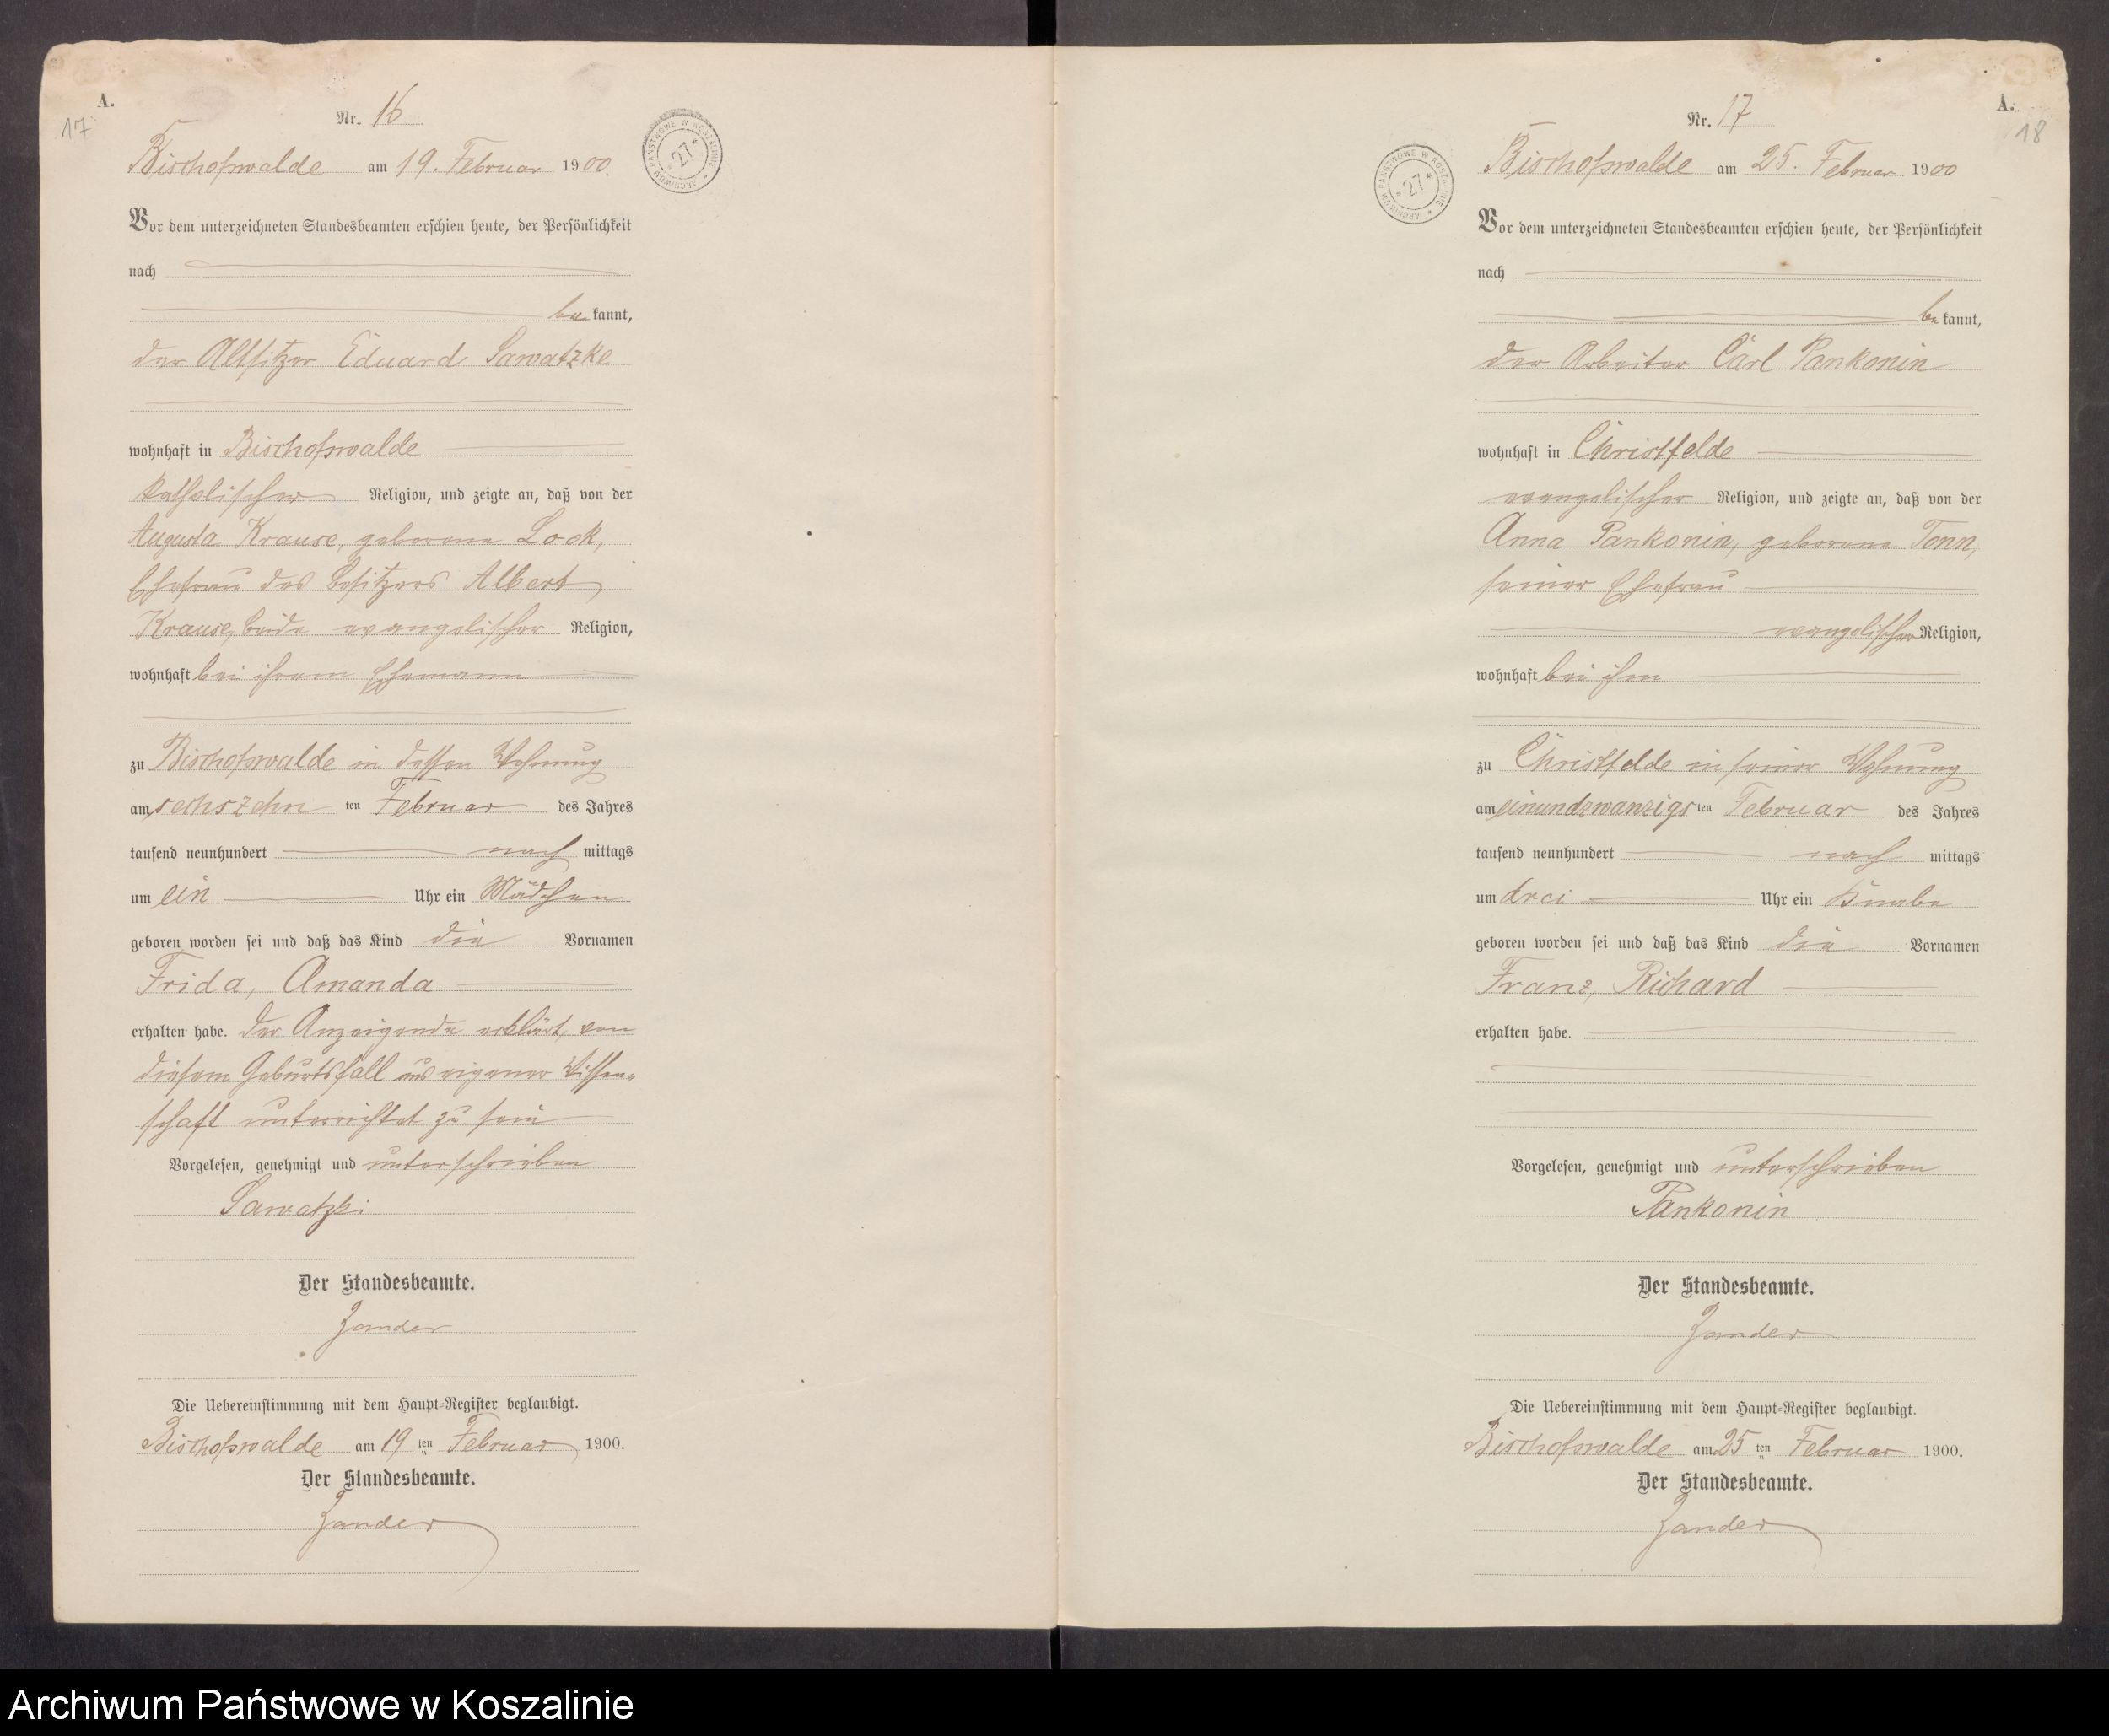 A.
17
Nr. 16
Bischofswalde am 19. Februar 1900.
Vor dem unterzeichneten Standesbeamten erschien heute, der Persönlichkeit
nach
bekannt,
der Altsitzer Eduard Sawatzke
wohnhaft in Bischofswalde
katholischer Religion, und zeigte an, daß von der
Augusta Krause, geborene Look,
Ehefrau des Besitzers Albert
Krause, beide evangelischer Religion,
wohnhaft bei ihrem Ehemann
zu Bischofswalde in dessen Wohnung
am sechszehn ten Februar des Jahres
tausend neunhundert nach mittags
um ein Uhr ein Mädchen
geboren worden sei und daß das Kind die Vornamen
Frida, Amanda
erhalten habe. Der Anzeigende erklärt, von
diesem Geburtsfall aus eigener Wissen-
schaft unterrichtet zu sein
Vorgelesen, genehmigt und unterschrieben
Sawatzki
Der Standesbeamte.
Zander
Die Uebereinstimmung mit dem Haupt-Register beglaubigt.
Bischofswalde am 19 ten Februar 1900.
Der Standesbeamte.
Zander
ARCHIWUM PAŃSTWOWE W KOSZALINIE
* 27 *
A.
18
Nr. 17
Bischofswalde am 25. Februar 1900
Vor dem unterzeichneten Standesbeamten erschien heute, der Persönlichkeit
nach
bekannt,
der Arbeiter Carl Pankonin
wohnhaft in Christfelde
evangelischer Religion, und zeigte an, daß von der
Anna Pankonin, geborene Tonn,
seiner Ehefrau
evangelischer Religion,
wohnhaft bei ihm
zu Christfelde in seiner Wohnung
am einundzwanzigs ten Februar des Jahres
tausend neunhundert nach mittags
um drei Uhr ein Knabe
geboren worden sei und daß das Kind die Vornamen
Franz, Richard
erhalten habe.
Vorgelesen, genehmigt und unterschrieben
Pankonin
Der Standesbeamte.
Zander
Die Uebereinstimmung mit dem Haupt-Register beglaubigt.
Bischofswalde am 25 ten Februar 1900.
Der Standesbeamte.
Zander
ARCHIWUM PAŃSTWOWE W KOSZALINIE
* 27 *
Archiwum Państwowe w Koszalinie